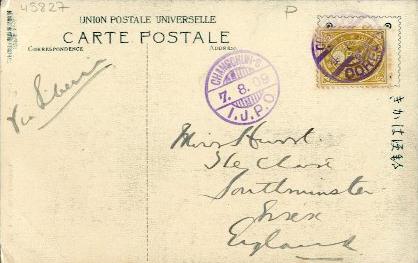 45827
P
UNION POSTALE UNIVERSELLE
CARTE POSTALE
CORRESPONDENCE
ADDRESS
CHANGCHUN-S
7. 8. 09
I.J.P.O
きかは便郵
Via Siberia
Miss Hurst.
The Close
Southminster
Essex
England